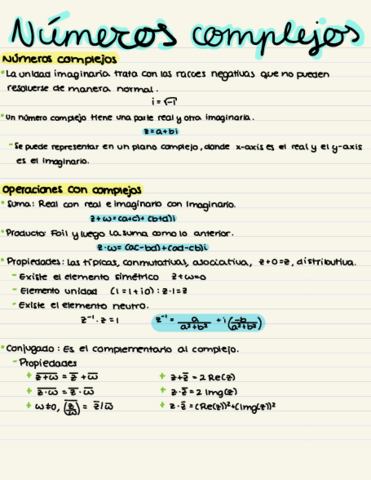 Números complejos
Números complejos
• La unidad imaginaria trata con las raíces negativas que no pueden
resolverse de manera normal.
i = √-1
• Un número complejo tiene una parte real y otra imaginaria.
z = a + bi
- Se puede representar en un plano complejo, donde x-axis es el real y el y-axis
es el imaginario.
Operaciones con complejos
• Suma: Real con real e imaginario con imaginario.
z + w = (a+c) + (b+d)i
• Producto: Foil y luego la suma como lo anterior.
z · w = (ac - bd) + (ad - cb)i
• Propiedades: las típicas, conmutativas, asociativa, z + 0 = z, distributiva.
- Existe el elemento simétrico z + w = 0
- Elemento unidad (1 = 1 + i0) : z · 1 = z
- Existe el elemento neutro.
z⁻¹ · z = 1 z⁻¹ = a/(a²+b²) + i (-b/(a²+b²))
• Conjugado: Es el complementario al complejo.
- Propiedades
+ z̅+̅w̅ = z̅ + w̅ + z + z̅ = 2 Re(z)
+ z̅·̅w̅ = z̅ · w̅ + z · z̅ = 2 Img(z)
+ w ≠ 0, (z̅/w̅) = z̅/w̅ + z · z̅ = (Re(z))² + (Img(z))²